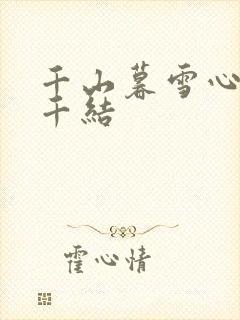 千山暮雪心
千結
霍心情